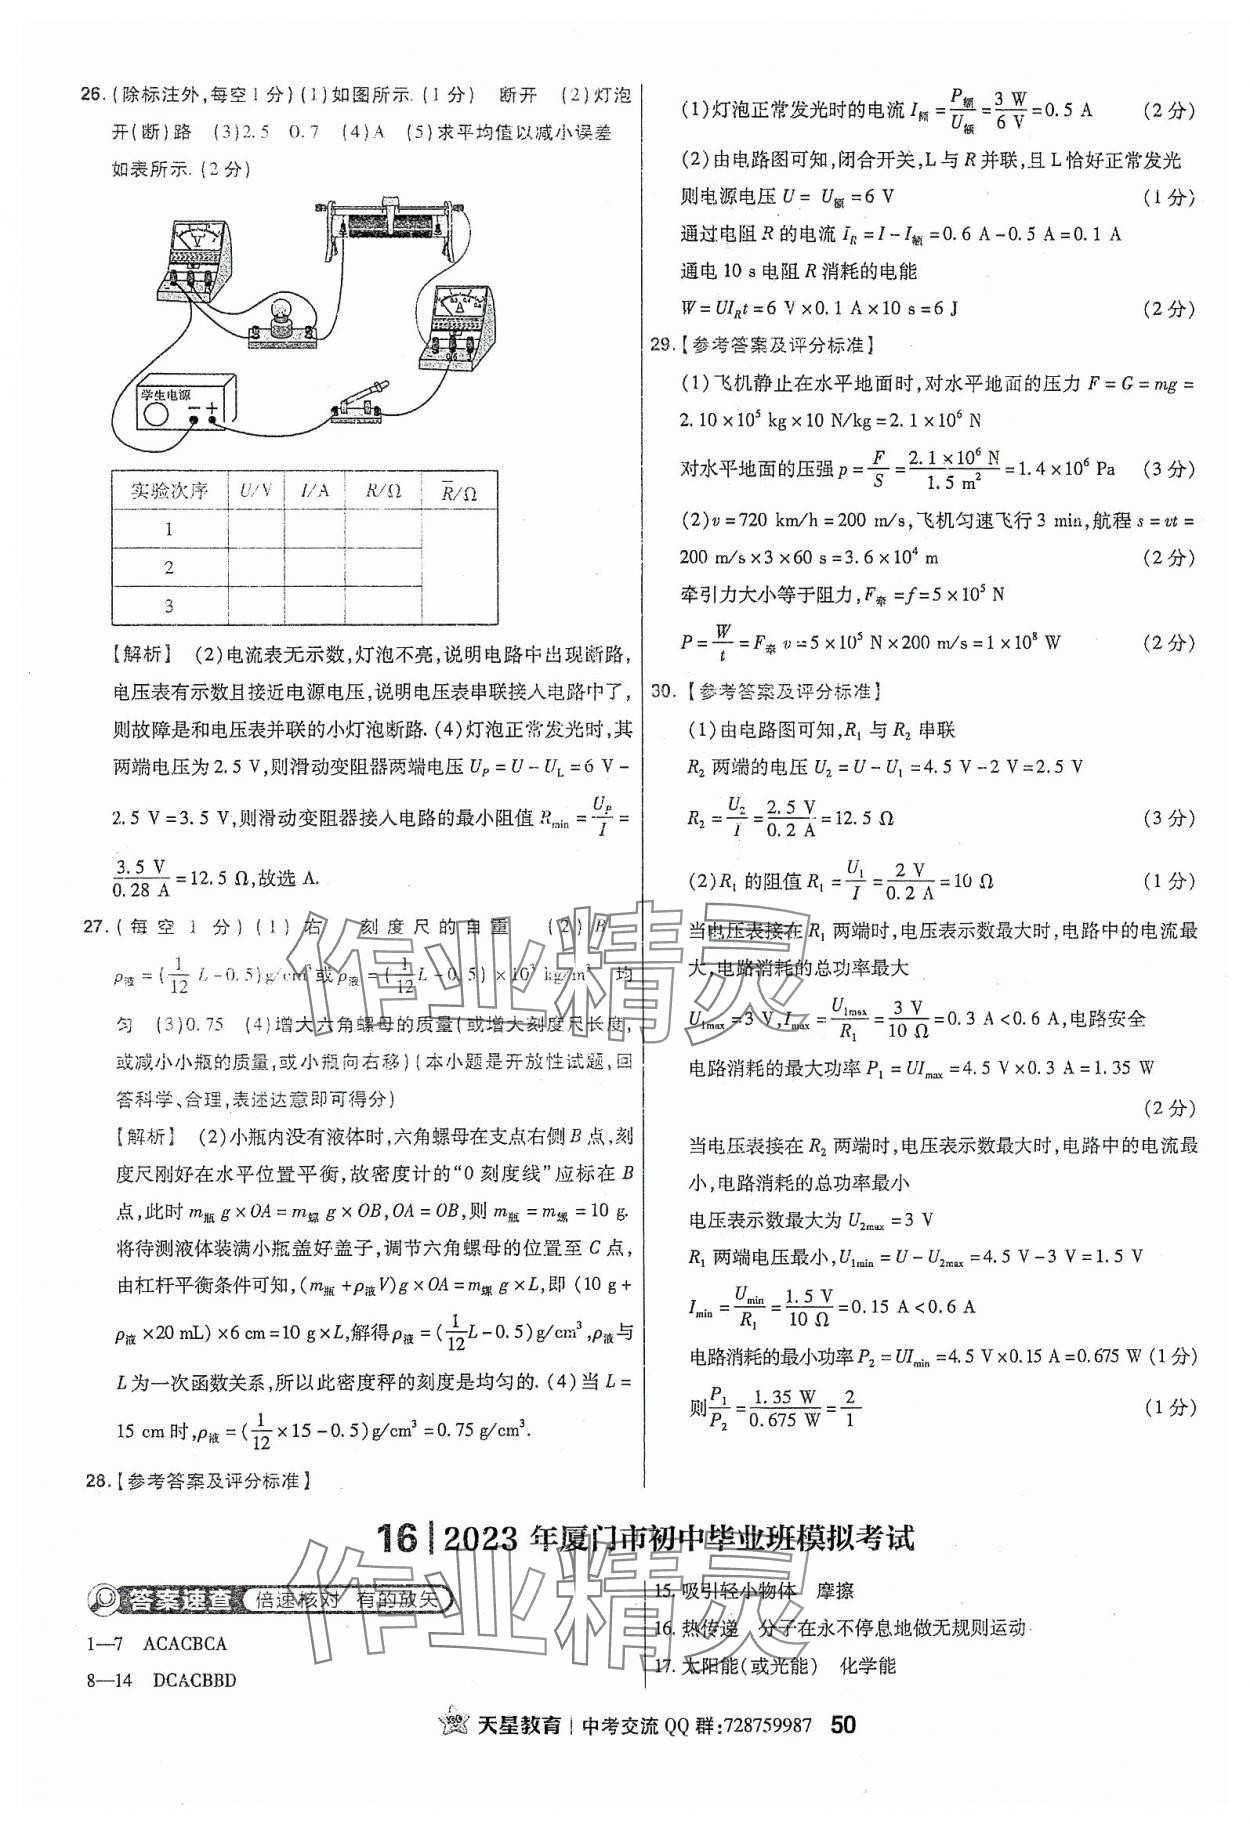 26. (除标注外,每空1分)(1)如图所示.(1分) 断开 (2)灯泡
开(断)路 (3)2.5 0.7 (4)A (5)求平均值以减小误差
如表所示.(2分)
学生电源
- +
实验次序 U/V I/A R/Ω R̅/Ω
1
2
3
【解析】 (2)电流表无示数,灯泡不亮,说明电路中出现断路,
电压表有示数且接近电源电压,说明电压表串联接入电路中了,
则故障是和电压表并联的小灯泡断路.(4)灯泡正常发光时,其
两端电压为2.5 V,则滑动变阻器两端电压U_P=U-U_L=6 V-
2.5 V=3.5 V,则滑动变阻器接入电路的最小阻值R_min=U_P/I=
3.5 V/0.28 A=12.5 Ω,故选A.
27. (每空1分)(1)右 刻度尺的自重 (2)B
ρ液=(1/12 L-0.5)g/cm³或ρ液=(1/12 L-0.5)×10³ kg/m³ 均
匀 (3)0.75 (4)增大六角螺母的质量(或增大刻度尺长度,
或减小小瓶的质量,或小瓶向右移)(本小题是开放性试题,回
答科学、合理,表述达意即可得分)
【解析】 (2)小瓶内没有液体时,六角螺母在支点右侧B点,刻
度尺刚好在水平位置平衡,故密度计的“0刻度线”应标在B
点,此时m瓶 g×OA=m螺 g×OB,OA=OB,则m瓶=m螺=10 g.
将待测液体装满小瓶盖好盖子,调节六角螺母的位置至C点,
由杠杆平衡条件可知,(m瓶+ρ液V)g×OA=m螺 g×L,即 (10 g+
ρ液×20 mL)×6 cm=10 g×L,解得ρ液=(1/12 L-0.5)g/cm³,ρ液与
L为一次函数关系,所以此密度秤的刻度是均匀的.(4)当L=
15 cm时,ρ液=(1/12×15-0.5)g/cm³=0.75 g/cm³.
28.【参考答案及评分标准】
(1)灯泡正常发光时的电流I额=P额/U额=3 W/6 V=0.5 A (2分)
(2)由电路图可知,闭合开关,L与R并联,且L恰好正常发光
则电源电压U= U额=6 V (1分)
通过电阻R的电流I_R=I-I额=0.6 A-0.5 A=0.1 A
通电10 s电阻R消耗的电能
W=UI_Rt=6 V×0.1 A×10 s=6 J (2分)
29.【参考答案及评分标准】
(1)飞机静止在水平地面时,对水平地面的压力F=G=mg=
2.10×10⁵ kg×10 N/kg=2.1×10⁶ N
对水平地面的压强p=F/S=2.1×10⁶ N/1.5 m²=1.4×10⁶ Pa (3分)
(2)v=720 km/h=200 m/s,飞机匀速飞行3 min,航程s=vt=
200 m/s×3×60 s=3.6×10⁴ m (2分)
牵引力大小等于阻力,F牵=f=5×10⁵ N
P=W/t=F牵 v=5×10⁵ N×200 m/s=1×10⁸ W (2分)
30.【参考答案及评分标准】
(1)由电路图可知,R₁与R₂串联
R₂两端的电压U₂=U-U₁=4.5 V-2 V=2.5 V
R₂=U₂/I=2.5 V/0.2 A=12.5 Ω (3分)
(2)R₁的阻值R₁=U₁/I=2 V/0.2 A=10 Ω (1分)
当电压表接在R₁两端时,电压表示数最大时,电路中的电流最
大,电路消耗的总功率最大
U_1max=3 V,I_max=U_1max/R₁=3 V/10 Ω=0.3 A<0.6 A,电路安全
电路消耗的最大功率P₁=UI_max=4.5 V×0.3 A=1.35 W
(2分)
当电压表接在R₂两端时,电压表示数最大时,电路中的电流最
小,电路消耗的总功率最小
电压表示数最大为U_2max=3 V
R₁两端电压最小,U_1min=U-U_2max=4.5 V-3 V=1.5 V
I_min=U_min/R₁=1.5 V/10 Ω=0.15 A<0.6 A
电路消耗的最小功率P₂=UI_min=4.5 V×0.15 A=0.675 W(1分)
则P₁/P₂=1.35 W/0.675 W=2/1 (1分)
16 | 2023 年厦门市初中毕业班模拟考试
答案速查 倍速核对 有的放矢
1—7 ACACBCA
8—14 DCACBBD
15. 吸引轻小物体 摩擦
16. 热传递 分子在永不停息地做无规则运动
17. 太阳能(或光能) 化学能
天星教育 | 中考交流QQ群:728759987 50
作业精灵
作业精灵